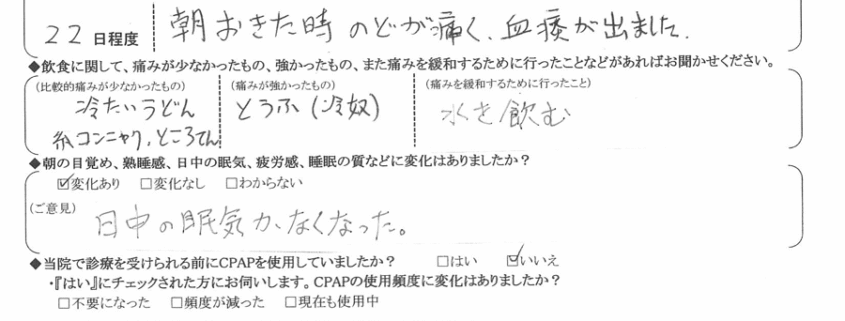 22 日程度 朝おきた時 のどが痛く、血痰が出ました.
◆飲食に関して、痛みが少なかったもの、強かったもの、また痛みを緩和するために行ったことなどがあればお聞かせください。
(比較的痛みが少なかったもの) (痛みが強かったもの) (痛みを緩和するために行ったこと)
冷たいうどん とうふ(冷奴) 水を飲む
糸コンニャク、ところてん
◆朝の目覚め、熟睡感、日中の眠気、疲労感、睡眠の質などに変化はありましたか?
☑変化あり □変化なし □わからない
(ご意見) 日中の眠気が、なくなった。
◆当院で診療を受けられる前にCPAPを使用していましたか? □はい ☑いいえ
・『はい』にチェックされた方にお伺いします。CPAPの使用頻度に変化はありましたか?
□不要になった □頻度が減った □現在も使用中